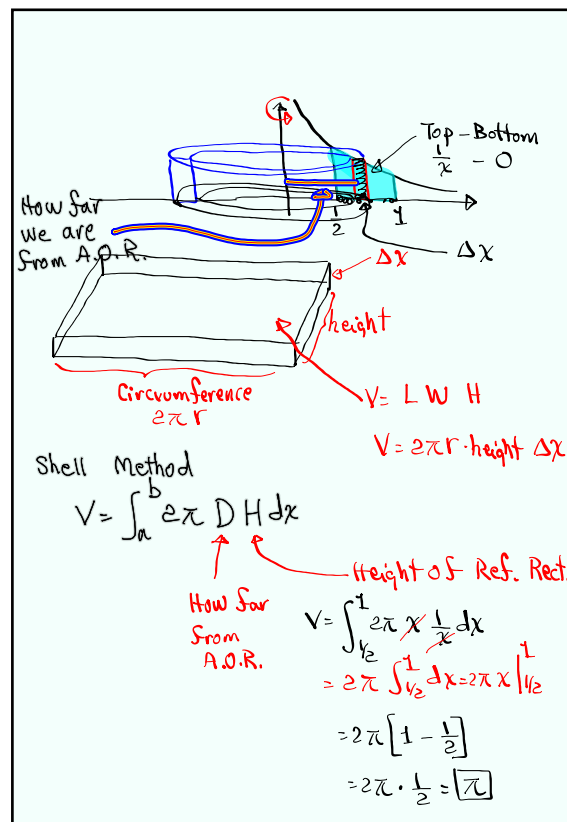 Top-Bottom
1/x - 0
How far
we are
from A.O.R.
1/2
1
Δx
Δx
height
Circuumference
2πr
V= L W H
V= 2πr·height Δx
Shell Method
V= ∫_a^b 2π D H dx
Height of Ref. Rect.
How far
from
A.O.R.
V= ∫_{1/2}^1 2π x 1/x dx
= 2π ∫_{1/2}^1 dx = 2π x |_{1/2}^1
= 2π [1 - 1/2]
= 2π · 1/2 = π